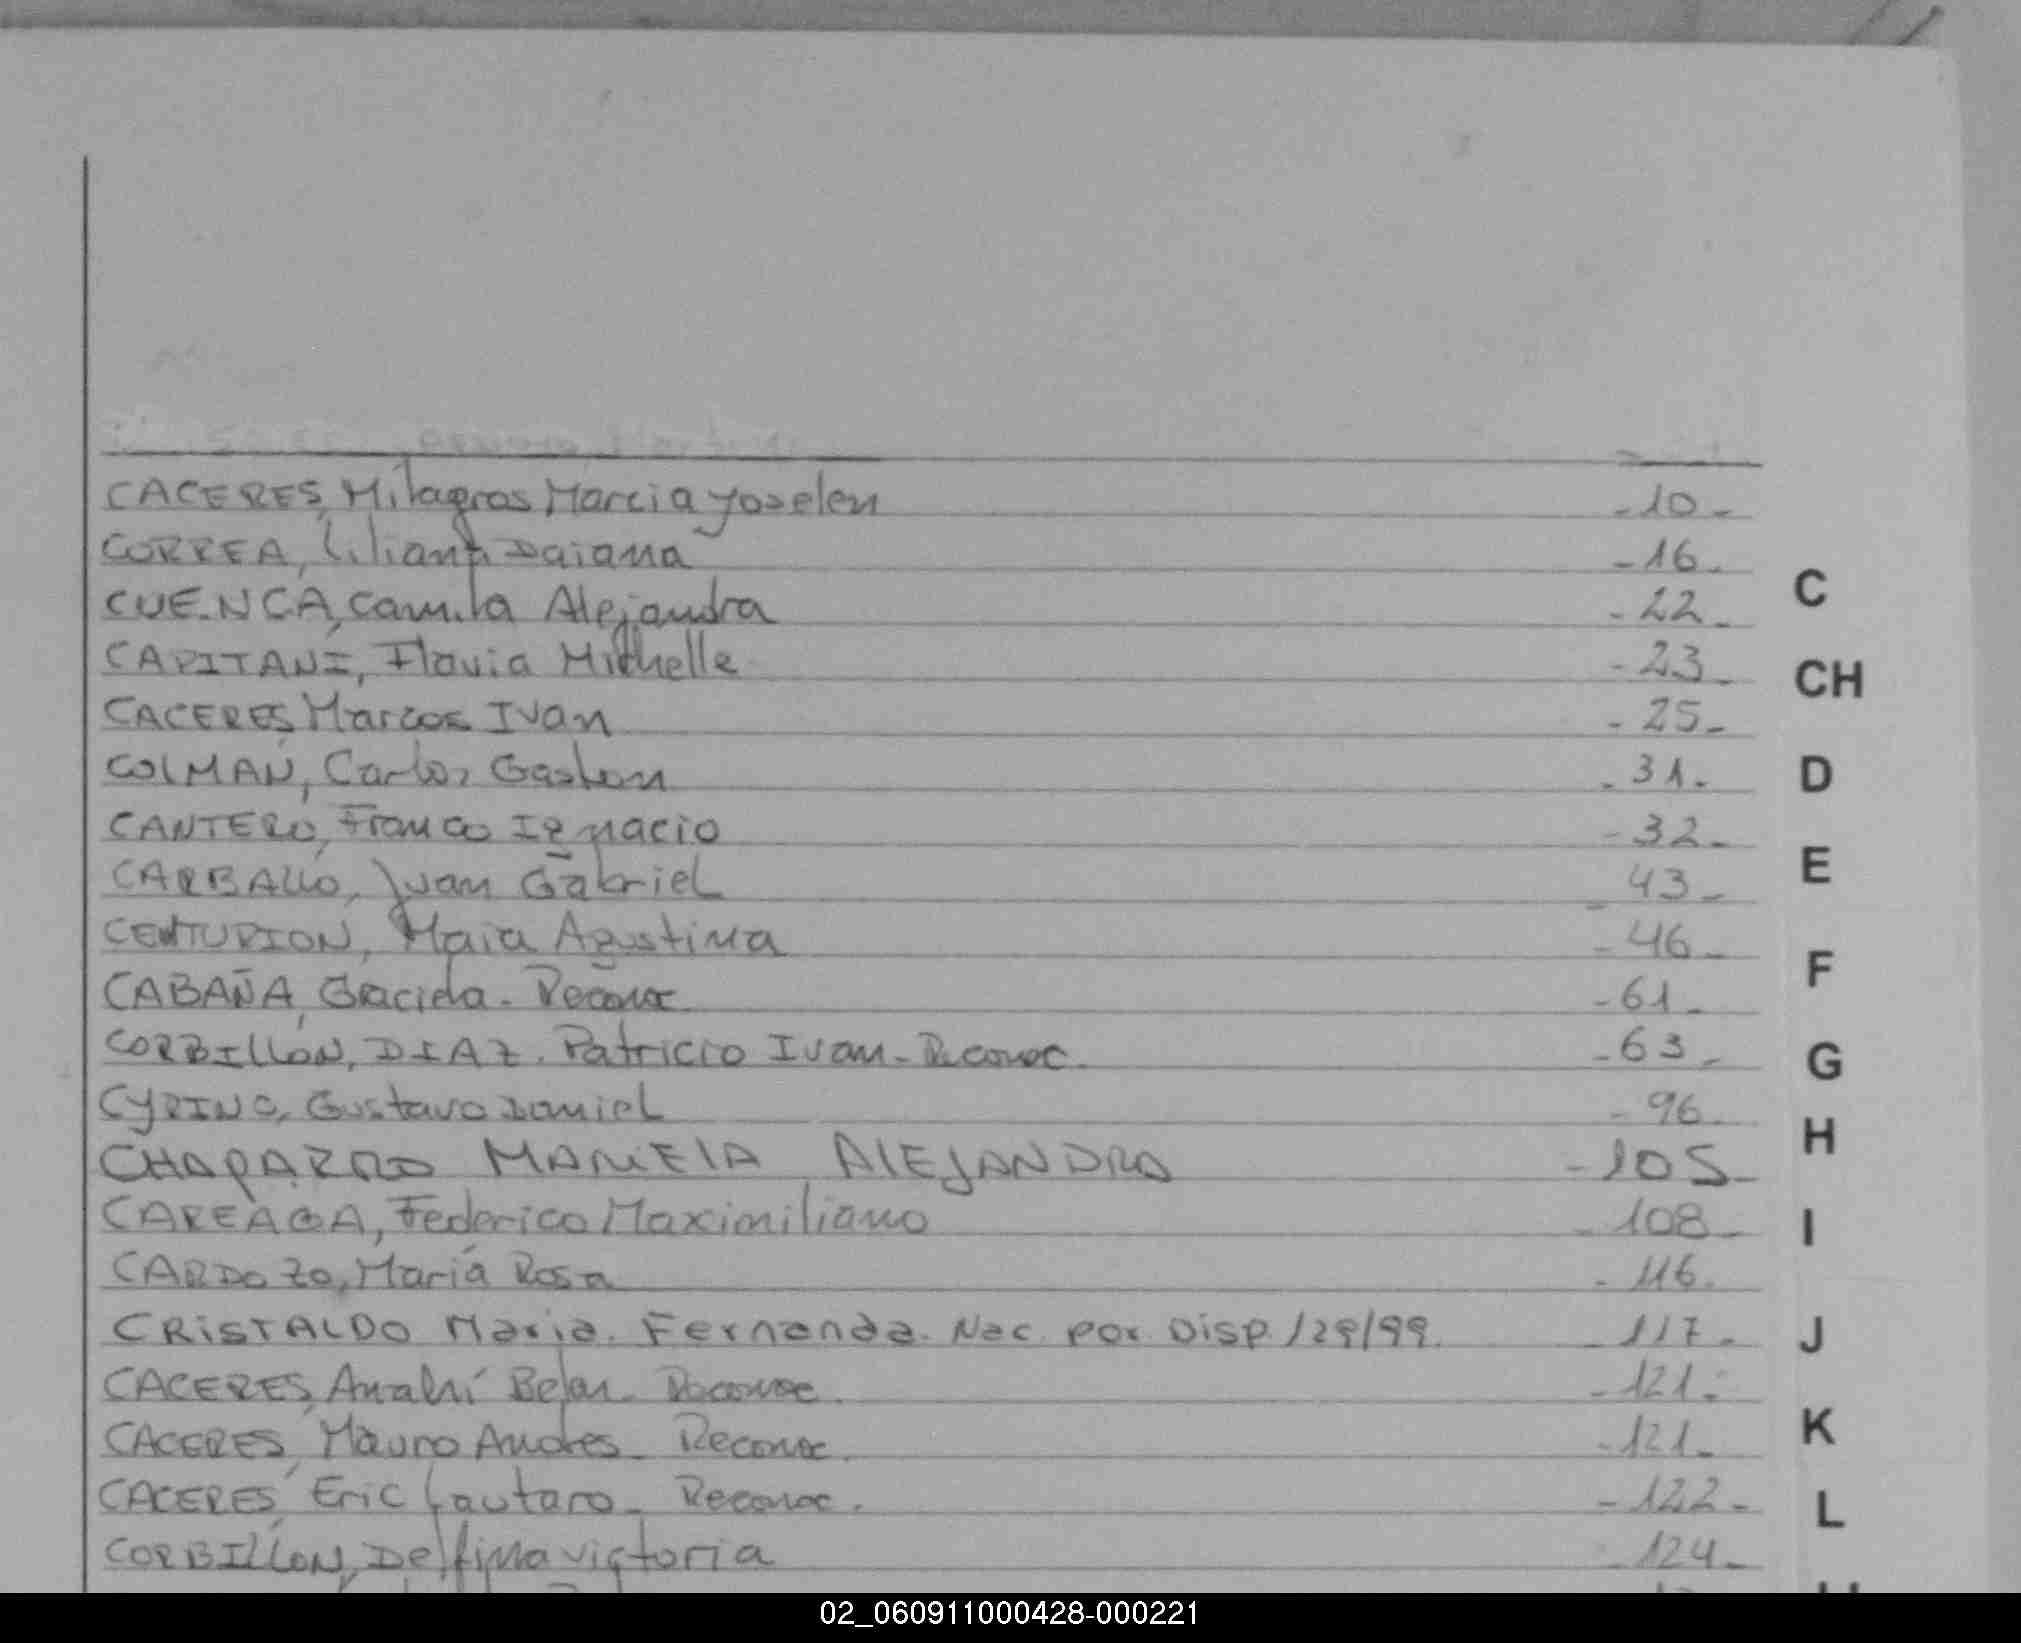 CACERES, Milagros Marcia Joselen -10-
CORREA, Liliana Daiana -16-
C
CUENCA, Camila Alejandra -22-
CAPITANI, Flavia Michelle -23-
CH
CACERES, Marcos Ivan -25-
COLMAN, Carlos Gaston -31-
D
CANTERO, Franco Ignacio -32-
CARBALLO, Juan Gabriel -43-
E
CENTURION, Maia Agustina -46-
F
CABAÑA, Graciela - Reconoc -61-
CORBILLÓN, DIAZ. Patricio Ivan - Reconoc. -63-
G
CYRINO, Gustavo Daniel -96-
H
CHAPARRO MARIELA ALEJANDRA -105-
CAREAGA, Federico Maximiliano -108-
I
CARDOZO, María Rosa -116-
CRISTALDO Maria. Fernanda. Nac por Disp. 129/99. -117-
J
CACERES, Anahí Belen - Reconoc. -121-
CACERES, Mauro Andres - Reconoc. -121-
K
CACERES, Eric Lautaro - Reconoc. -122-
L
CORBILLÓN, Delfina Victoria -124-
02_060911000428-000221